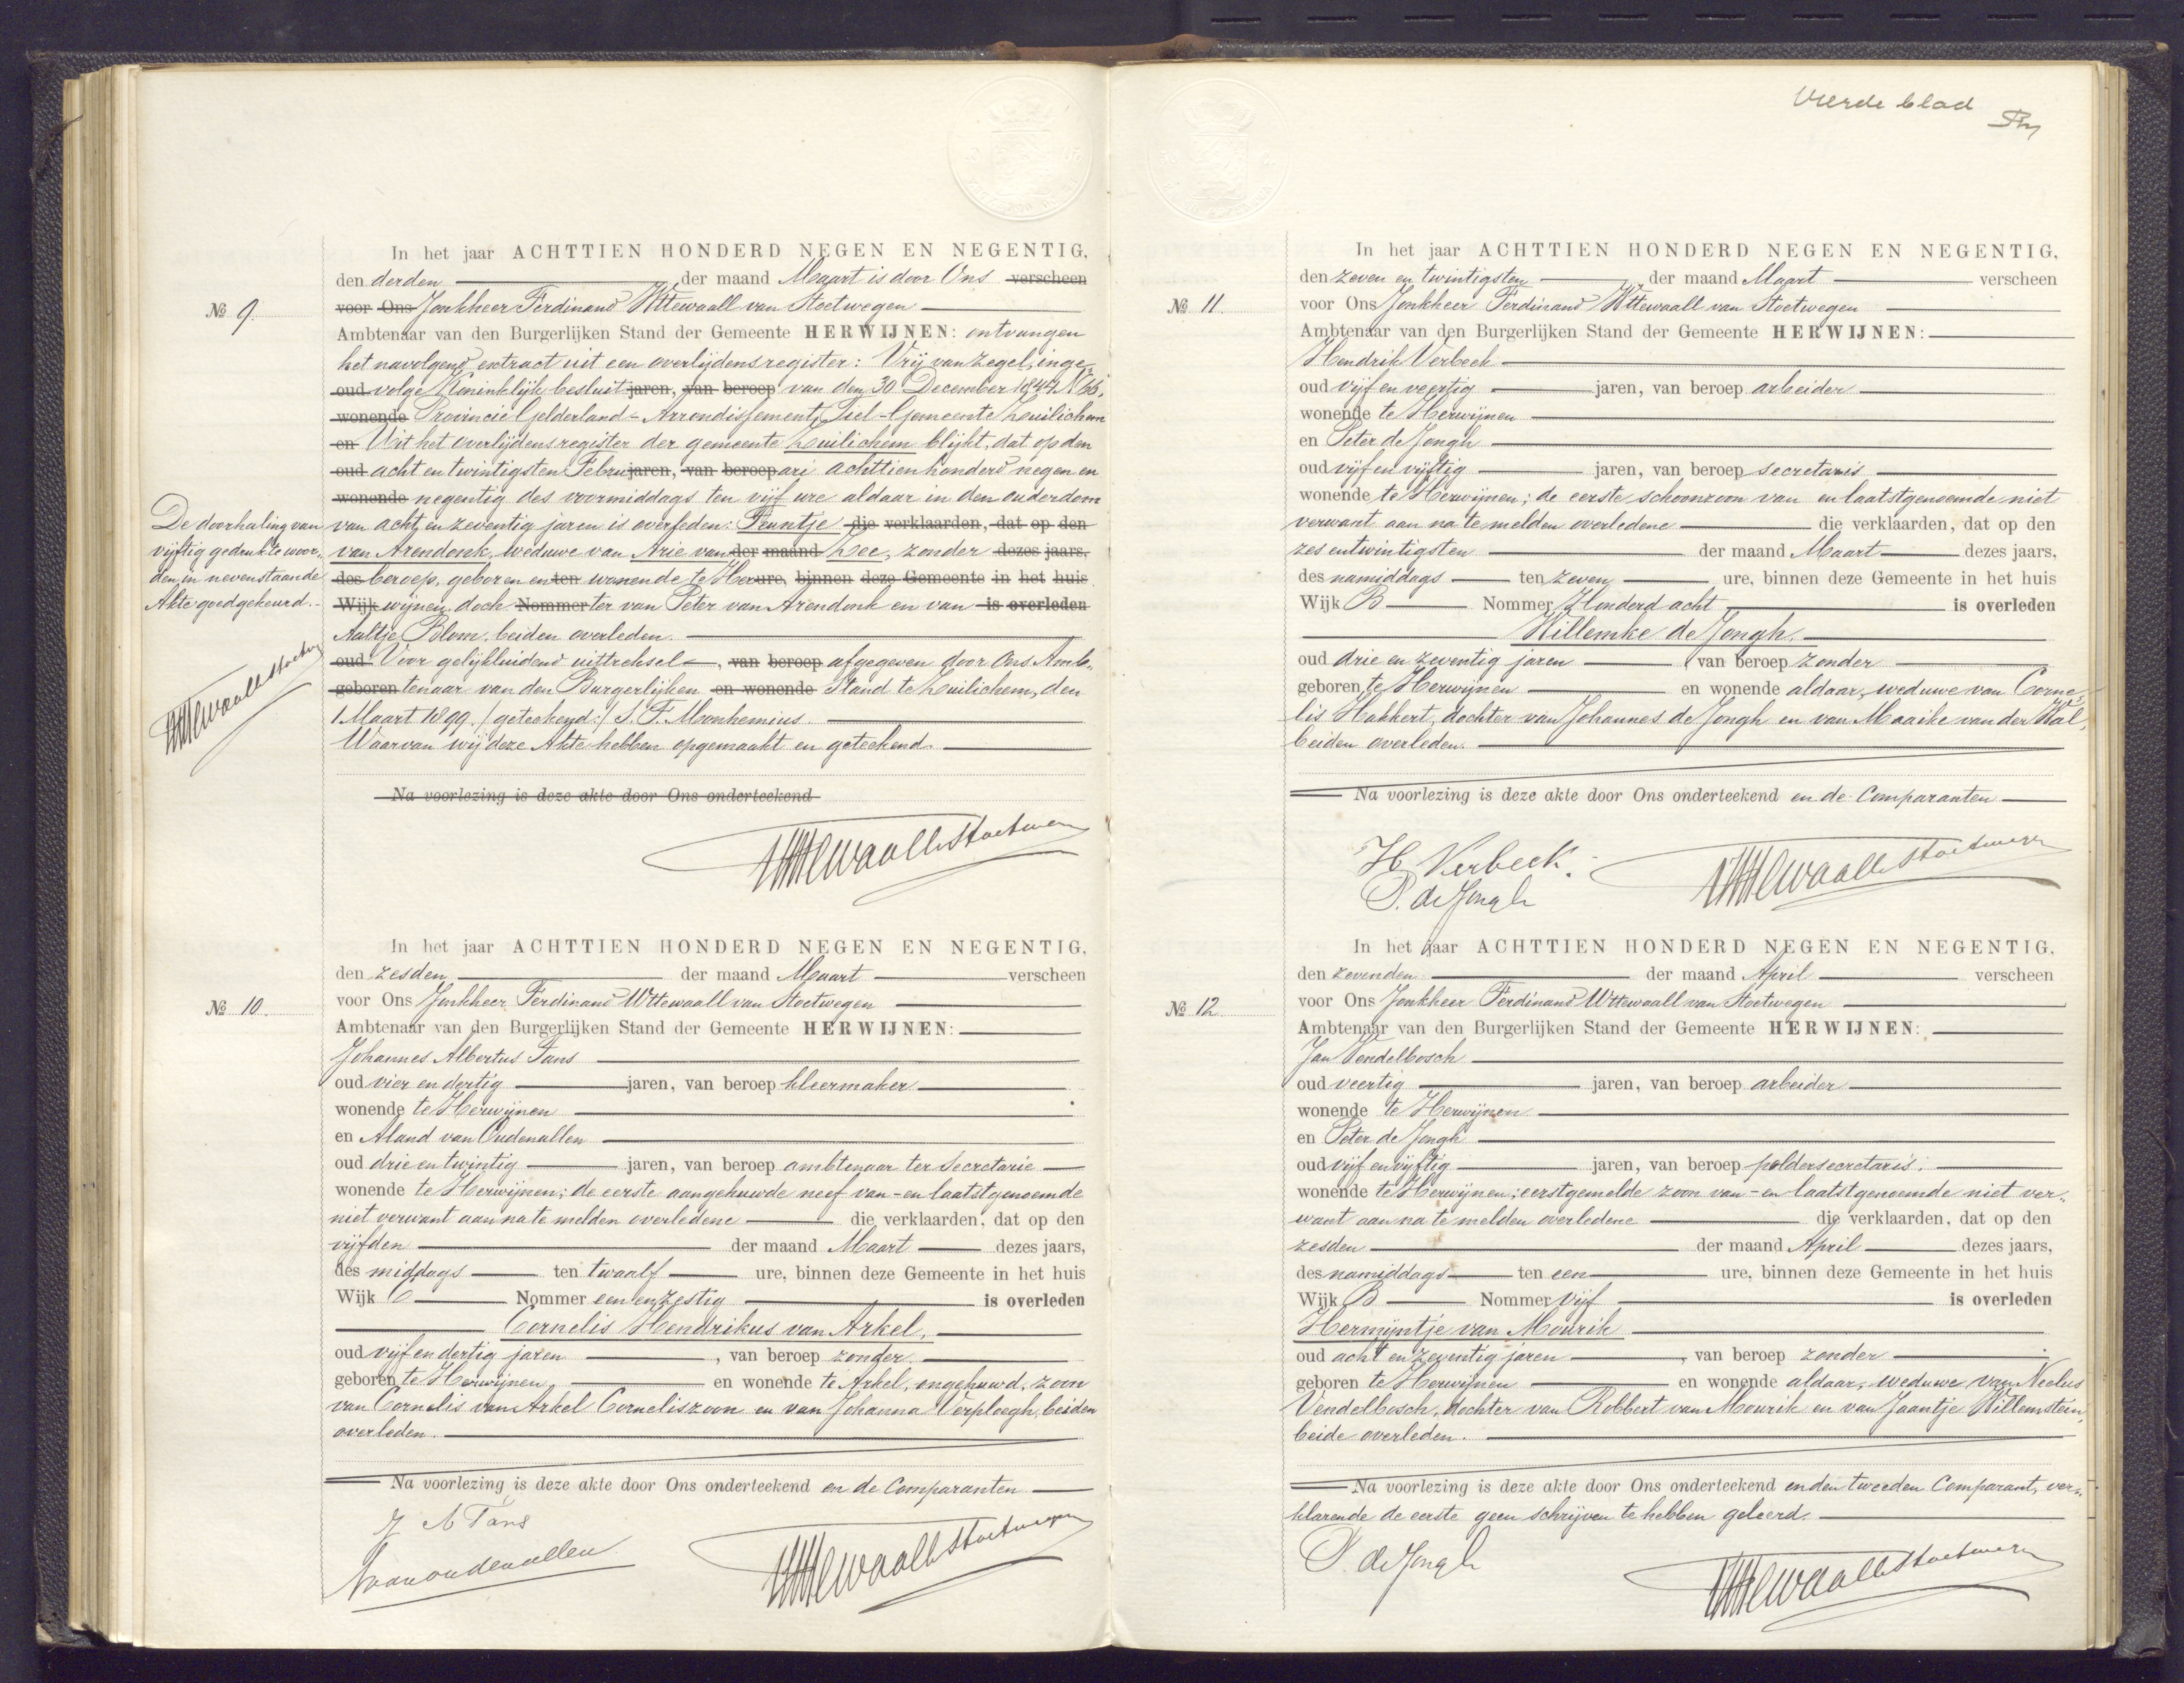 In het jaar ACHTTIEN HONDERD NEGEN EN NEGENTIG,
den derden der maand Maart is door Ons verscheen
No 9. voor Ons Jonkheer Ferdinand Wttewaall van Stoetwegen
Ambtenaar van den Burgerlijken Stand der Gemeente HERWIJNEN: ontvangen
het navolgend extract uit een overlijdensregister: Vrij van zegel, inge-
oud volge Koninklijk besluit jaren, van beroep van den 30 December 1844 No 66,
wonende Provincie Gelderland - Arrondissement Tiel - Gemeente Zuilichem
en Uit het overlijdensregister der gemeente Zuilichem blijkt, dat op den
oud acht en twintigsten Februjaren, van beroepari achttienhonderd negen en
wonende negentig des voormiddags ten vijf ure aldaar in den ouderdom
van acht en zeventig jaren is overleden: Teuntje die verklaarden, dat op den
van Arendonk, weduwe van Arie vander maand Zee, zonder dezes jaars,
des beroep, geboren enten wonende te Herure, binnen deze Gemeente in het huis
Wijk wijnen, doch Nommer ter van Peter van Arendonk en van is overleden
Aaltje Blom, beiden overleden.
oud Voor gelijkluidend uittreksel, van beroep afgegeven door Ons Amb-
geboren tenaar van den Burgerlijken en wonende Stand te Zuilichem, den
1 Maart 1899. /geteekend:/ J. F. Monhemius.
Waarvan wij deze Akte hebben opgemaakt en geteekend.
Na voorlezing is deze akte door Ons onderteekend
De doorhaling van
vijftig gedrukte woor-
den in nevenstaande
Akte goedgekeurd.
Wttewaall v Stoetwegen
Wttewaall v Stoetwegen
In het jaar ACHTTIEN HONDERD NEGEN EN NEGENTIG,
den zesden der maand Maart verscheen
No 10. voor Ons Jonkheer Ferdinand Wttewaall van Stoetwegen
Ambtenaar van den Burgerlijken Stand der Gemeente HERWIJNEN:
Johannes Albertus Tans
oud vier en dertig jaren, van beroep kleermaker
wonende te Herwijnen
en Aland van Oudenallen
oud drie en twintig jaren, van beroep ambtenaar ter Secretarie
wonende te Herwijnen; de eerste aangehuwde neef van - en laatstgenoemde
niet verwant aan na te melden overledene die verklaarden, dat op den
vijfden der maand Maart dezes jaars,
des middags ten twaalf ure, binnen deze Gemeente in het huis
Wijk C Nommer een en zestig is overleden
Cornelis Hendrikus van Arkel,
oud vijf en dertig jaren, van beroep zonder
geboren te Herwijnen en wonende te Arkel, ongehuwd, zoon
van Cornelis van Arkel Corneliszoon en van Johanna Verploegh, beiden
overleden.
Na voorlezing is deze akte door Ons onderteekend en de Comparanten
J A Tans
A van oudenallen
Wttewaall v Stoetwegen
Vierde blad
In het jaar ACHTTIEN HONDERD NEGEN EN NEGENTIG,
den zeven en twintigsten der maand Maart verscheen
No 11. voor Ons Jonkheer Ferdinand Wttewaall van Stoetwegen
Ambtenaar van den Burgerlijken Stand der Gemeente HERWIJNEN:
Hendrik Verbeek
oud vijf en veertig jaren, van beroep arbeider
wonende te Herwijnen
en Peter de Jongh
oud vijf en vijftig jaren, van beroep secretaris
wonende te Herwijnen; de eerste schoonzoon van en laatstgenoemde niet
verwant aan na te melden overledene die verklaarden, dat op den
zes en twintigsten der maand Maart dezes jaars,
des namiddags ten zeven ure, binnen deze Gemeente in het huis
Wijk B Nommer Honderd acht is overleden
Willemke de Jongh,
oud drie en zeventig jaren, van beroep zonder
geboren te Herwijnen en wonende aldaar, weduwe van Corne-
lis Hakkert, dochter van Johannes de Jongh en van Maaike van der Wal,
beiden overleden.
Na voorlezing is deze akte door Ons onderteekend en de Comparanten
H. Verbeek.
P. de Jongh
Wttewaall v Stoetwegen
In het jaar ACHTTIEN HONDERD NEGEN EN NEGENTIG,
den zevenden der maand April verscheen
No 12. voor Ons Jonkheer Ferdinand Wttewaall van Stoetwegen
Ambtenaar van den Burgerlijken Stand der Gemeente HERWIJNEN:
Jan Vendelbosch
oud veertig jaren, van beroep arbeider
wonende te Herwijnen
en Peter de Jongh
oud vijf en vijftig jaren, van beroep poldersecretaris.
wonende te Herwijnen; eerstgemelde zoon van - en laatstgenoemde niet ver-
want aan na te melden overledene die verklaarden, dat op den
zesden der maand April dezes jaars,
des namiddags ten een ure, binnen deze Gemeente in het huis
Wijk B Nommer Vijf is overleden
Hermijntje van Mourik
oud acht en zeventig jaren, van beroep zonder
geboren te Herwijnen en wonende aldaar, weduwe van Neelus
Vendelbosch, dochter van Robbert van Mourik en van Jaantje Willemstein,
beide overleden.
Na voorlezing is deze akte door Ons onderteekend en den tweeden Comparant, ver-
klarende de eerste geen schrijven te hebben geleerd.
P. de Jongh
Wttewaall v Stoetwegen